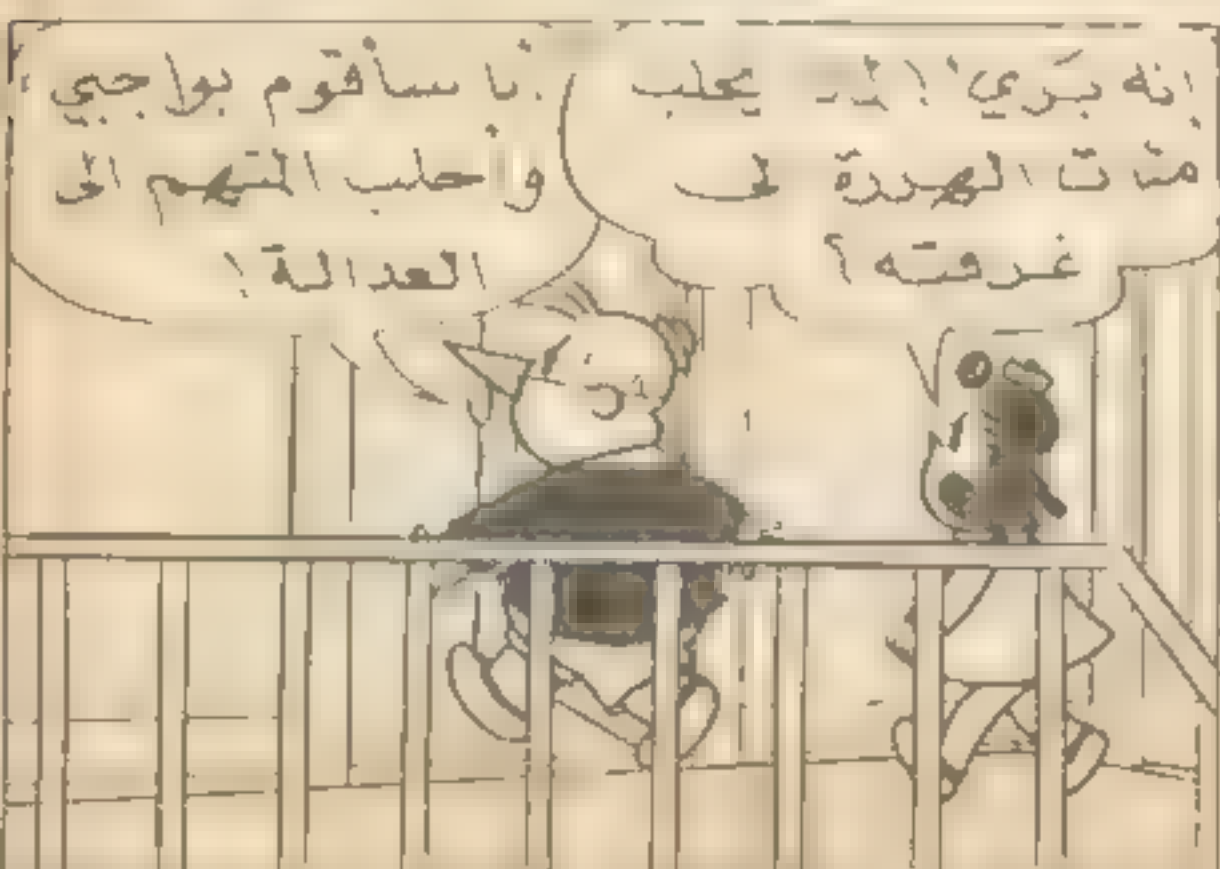 انه بَريء ! يجلب
الهررة
غرفته ؟
انا سأقوم بواجبي
واجلب المتهم الى
العدالة !